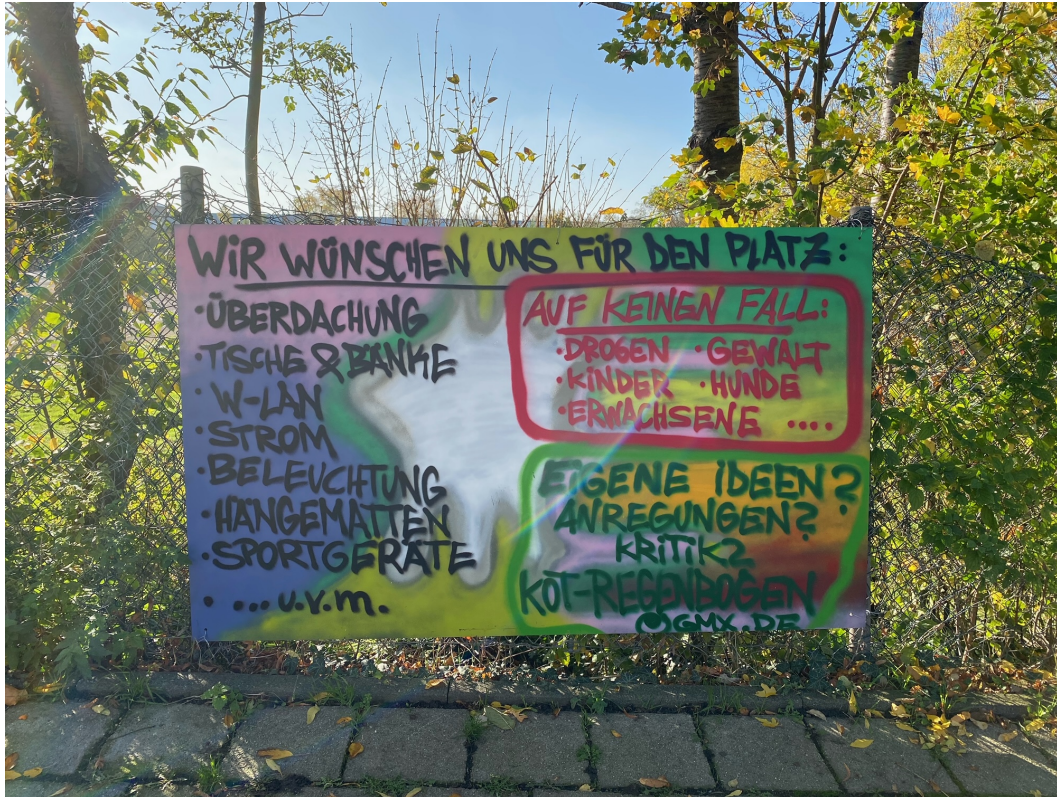 WiR WÜNSCHEN UNS FÜR DEN PLATZ:
·ÜBERDACHUNG
·TiSCHE & BÄNKE
·W-LAN
·STROM
·BELEUCHTUNG
·HÄNGEMATTEN
·SPORTGERÄTE
· ... u.v.m.
AUF KEINEN FALL:
·DROGEN ·GEWALT
·KiNDER ·HUNDE
·ERWACHSENE ....
EIGENE iDEEN?
ANREGUNGEN?
KRiTiK?
KOT-REGENBOGEN
@GMX.DE